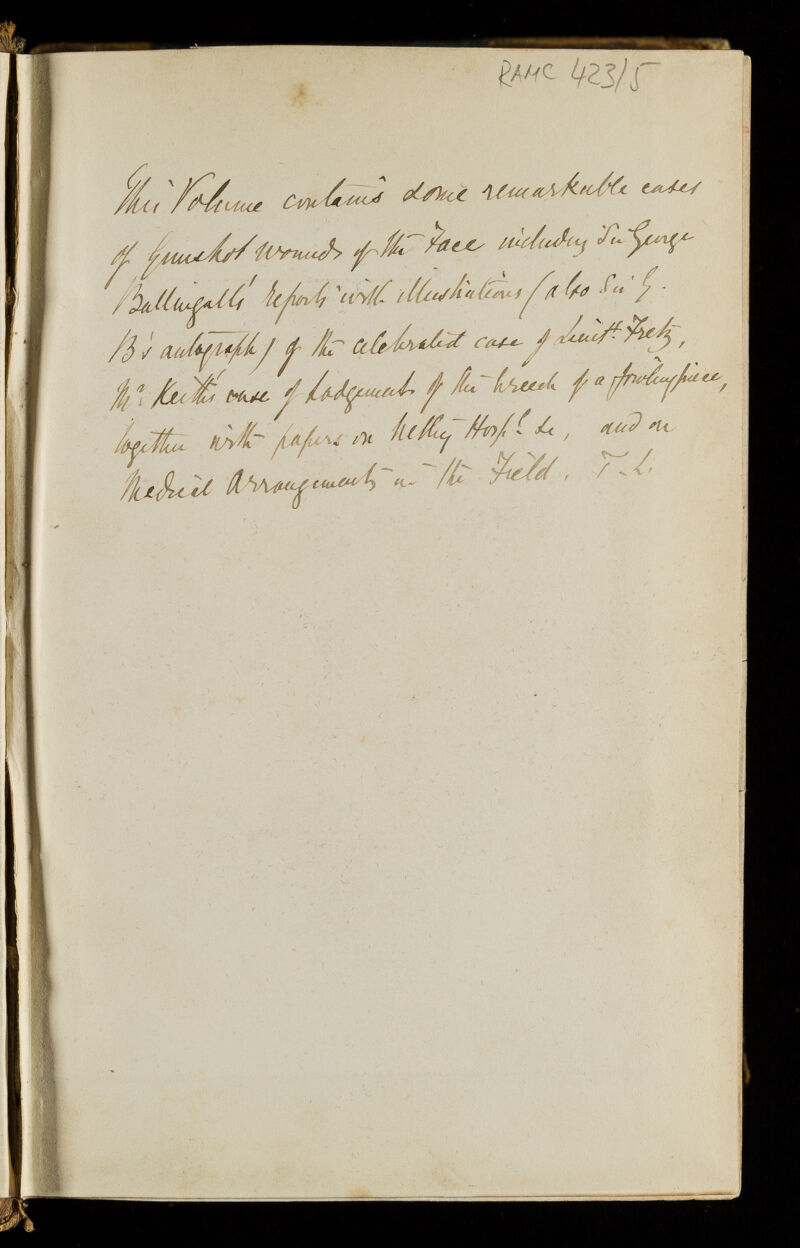 RAMC 423/5
This Volume contains some remarkable cases
of Gunshot wounds of the Face including Sir George
Ballingall's reports with illustrations (also Sir G.
B's autograph) of the celebrated case of Lieutt. Fretz,
Mr. Keith's case of Lodgement of the breech of a fowling piece,
together with papers on Netley Hospl. &c, and on
Medical Arrangements in the Field. T. L.